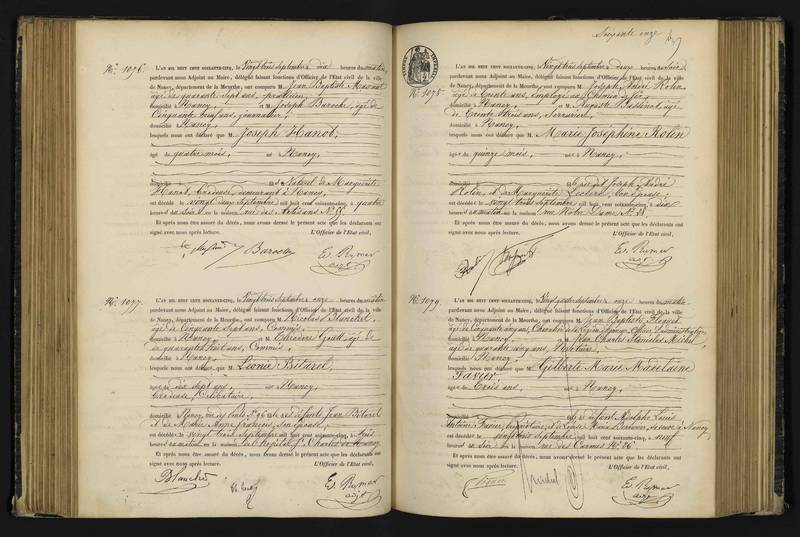 Nº. 1076. L'AN MIL HUIT CENT SOIXANTE-CINQ, le Vingt trois Septembre dix heures du matin
pardevant nous Adjoint au Maire, délégué faisant fonctions d'Officier de l'Etat civil de la ville
de Nancy, département de la Meurthe, ont comparu M. Jean Baptiste
âgé de quarante sept ans,
domicilié à Nancy, et M. Joseph Baroche, âgé de
Cinquante ans, journalier,
domicilié à Nancy,
lesquels nous ont déclaré que M. Joseph Hanot,
âgé de quatre mois, né à Nancy,
domicilié à fils Naturel de Marguerite
Hanot, brodeuse, demeurant à Nancy,
est décédé le vingt deux Septembre mil huit cent soixante-cinq, à quatre
heures du soir en la maison rue des Artisans Nº
Et après nous être assuré du décès, nous avons dressé le présent acte que les déclarants ont
signé avec nous après lecture. L'Officier de l'Etat civil,
E. Rymer
adjt
Nº. 1077. L'AN MIL HUIT CENT SOIXANTE-CINQ, le Vingt trois Septembre onze heures du matin
pardevant nous Adjoint au Maire, délégué faisant fonctions d'Officier de l'Etat civil de la ville
de Nancy, département de la Meurthe, ont comparu M. Nicolas Blanchet,
âgé de Cinquante Sept ans, Commis,
domicilié à Nancy, et M. Théodore âgé de
de quarante huit ans, Commis,
domicilié à Nancy,
lesquels nous ont déclaré que M. Léonie
âgée de dix sept ans, née à Nancy,
brodeuse, Célibataire,
domiciliée à Nancy, fille de défunts Jean
et de Marie Anne François, son épouse,
est décédée le vingt trois Septembre mil huit cent soixante-cinq, à trois
heures du matin en la maison l'hôpital St Charles de Nancy.
Et après nous être assuré du décès, nous avons dressé le présent acte que les déclarants ont
signé avec nous après lecture. L'Officier de l'Etat civil,
Blanchet E. Rymer
adjt
Soixante onze
Nº. 1078. L'AN MIL HUIT CENT SOIXANTE-CINQ, le Vingt trois Septembre deux heures du soir
pardevant nous Adjoint au Maire, délégué faisant fonctions d'Officier de l'Etat civil de la ville
de Nancy, département de la Meurthe, ont comparu M. Joseph André Rolin,
âgé de trente ans, employé au Chemin de fer,
domicilié à Nancy, et M. Auguste âgé
de trente trois ans, Serrurier,
domicilié à Nancy,
lesquels nous ont déclaré que M. Marie Joséphine Rolin
âgée de quinze mois, née à Nancy,
domiciliée à fille de Joseph André
Rolin, et de Marguerite Leclerc, son épouse,
est décédée le vingt trois Septembre mil huit cent soixante-cinq, à dix
heures du matin en la maison rue Notre Dame Nº
Et après nous être assuré du décès, nous avons dressé le présent acte que les déclarants ont
signé avec nous après lecture. L'Officier de l'Etat civil,
E. Rymer
adjt
Nº. 1079. L'AN MIL HUIT CENT SOIXANTE-CINQ, le Vingt quatre Septembre onze heures du matin
pardevant nous Adjoint au Maire, délégué faisant fonctions d'Officier de l'Etat civil de la ville
de Nancy, département de la Meurthe, ont comparu M. Jean Baptiste
âgé de Cinquante cinq ans, Chevalier de la Légion d'honneur, Officier d'administration
domicilié à Nancy, et M. Jean Charles Stanislas Michel,
âgé de quarante cinq ans, Notaire,
domicilié à Nancy,
lesquels nous ont déclaré que M. Gilberte Marie Madelaine
Favier,
âgée de Trois ans, née à Nancy,
domiciliée à Adolphe Louis
Favier, et de Louise Marie à Nancy
est décédée le vingt trois Septembre mil huit cent soixante-cinq, à neuf
heures du soir en la maison rue des Carmes Nº 36.
Et après nous être assuré du décès, nous avons dressé le présent acte que les déclarants ont
signé avec nous après lecture. L'Officier de l'Etat civil,
Michel E. Rymer
adjt